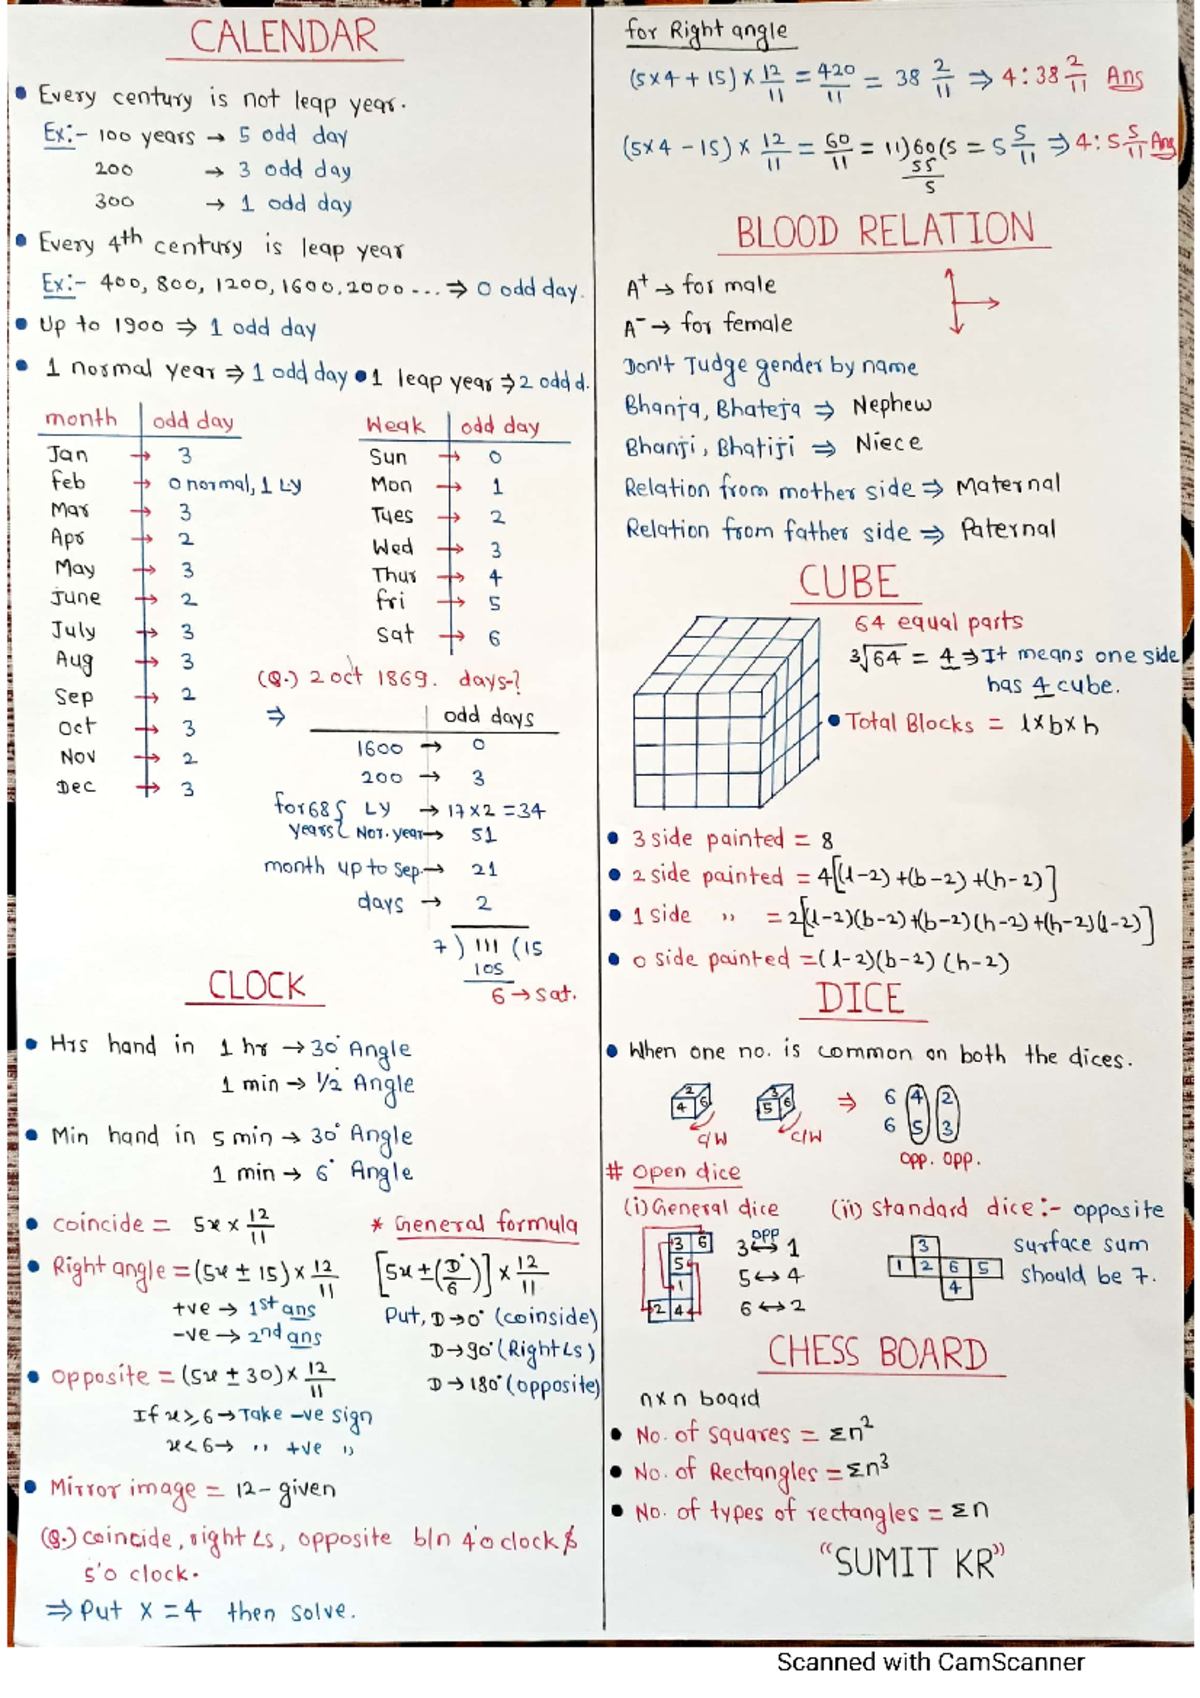 CALENDAR
• Every century is not leap year.
Ex:- 100 years → 5 odd day
200 → 3 odd day
300 → 1 odd day
• Every 4th century is leap year
Ex:- 400, 800, 1200, 1600, 2000 ... ⇒ 0 odd day.
• Up to 1900 ⇒ 1 odd day
• 1 normal year ⇒ 1 odd day • 1 leap year ⇒ 2 odd d.
month odd day
Jan → 3
feb → 0 normal, 1 LY
Mar → 3
Apr → 2
May → 3
June → 2
July → 3
Aug → 3
Sep → 2
Oct → 3
Nov → 2
Dec → 3
Weak odd day
Sun → 0
Mon → 1
Tues → 2
Wed → 3
Thur → 4
fri → 5
Sat → 6
(Q.) 2 oct 1869. days-?
⇒ odd days
1600 → 0
200 → 3
for 68 { LY → 17×2 = 34
years { Nor. year → 51
month up to Sep. → 21
days → 2
7 ) 111 ( 15
105
6 → Sat.
CLOCK
• Hrs hand in 1 hr → 30° Angle
1 min → 1/2° Angle
• Min hand in 5 min → 30° Angle
1 min → 6° Angle
• coincide = 5x × 12/11
• Right angle = (5x ± 15) × 12/11
+ve → 1st ans
-ve → 2nd ans
• opposite = (5x ± 30) × 12/11
If x ≥ 6 → Take -ve sign
x < 6 → ,, +ve ,,
* General formula
[5x ± (D°/6)] × 12/11
Put, D → 0° (coinside)
D → 90° (Right ∠s)
D → 180° (opposite)
• Mirror image = 12 - given
(Q.) coincide, right ∠s, opposite b/n 4'o clock &
5'o clock.
⇒ Put x = 4 then solve.
for Right angle
(5×4 + 15) × 12/11 = 420/11 = 38 2/11 ⇒ 4:38 2/11 Ans
(5×4 - 15) × 12/11 = 60/11 = 11)60(5 = 5 5/11 ⇒ 4:5 5/11 Ans
55
5
BLOOD RELATION
A+ → for male
A- → for female
Don't Judge gender by name
Bhanja, Bhateja ⇒ Nephew
Bhanji, Bhatiji ⇒ Niece
Relation from mother side ⇒ Maternal
Relation from father side ⇒ Paternal
CUBE
64 equal parts
3√64 = 4 ⇒ It means one side
has 4 cube.
• Total Blocks = l×b×h
• 3 side painted = 8
• 2 side painted = 4[(l-2)+(b-2)+(h-2)]
• 1 side ,, = 2[(l-2)(b-2)+(b-2)(h-2)+(h-2)(l-2)]
• 0 side painted = (l-2)(b-2)(h-2)
DICE
• When one no. is common on both the dices.
2 4 6
3 5 6
⇒ 6 4 2
6 5 3
C/W C/W opp. opp.
# Open dice
(i) General dice
3 6
5
1
2 4
3 ↔ 1
opp
5 ↔ 4
6 ↔ 2
(ii) Standard dice:- opposite
surface sum
should be 7.
3
1 2 6 5
4
CHESS BOARD
n×n board
• No. of squares = Σn²
• No. of Rectangles = Σn³
• No. of types of rectangles = Σn
"SUMIT KR"
Scanned with CamScanner